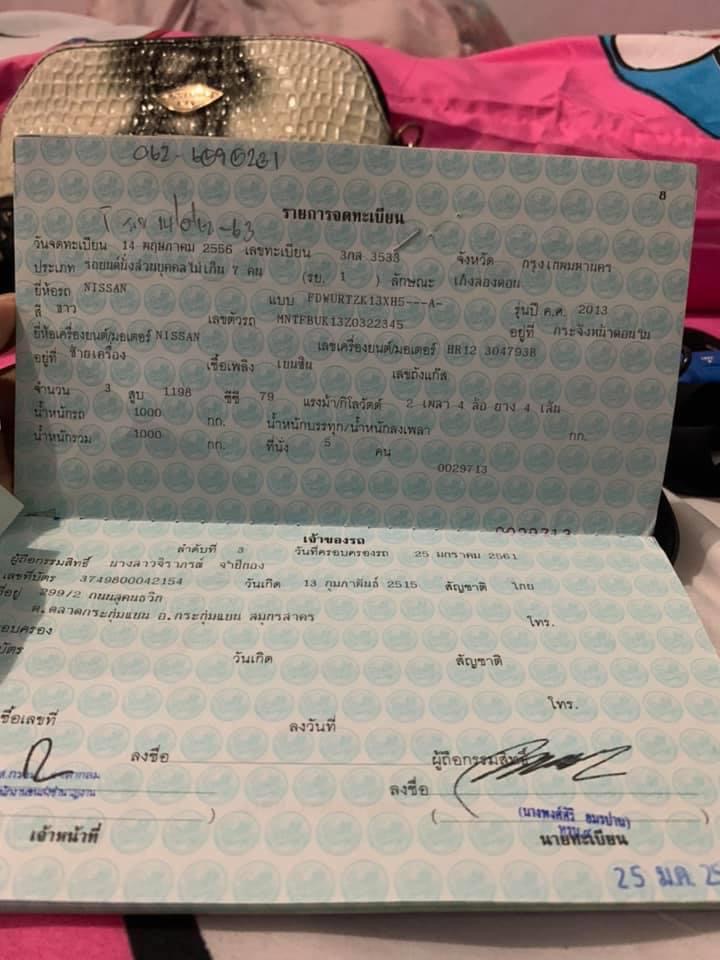 062-
8
รายการจดทะเบียน
วันจดทะเบียน 14 พฤษภาคม 2556 เลขทะเบียน 3กส 3533 จังหวัด กรุงเทพมหานคร
ประเภท รถยนต์นั่งส่วนบุคคลไม่เกิน 7 คน (รย. 1 ) ลักษณะ เก๋งสองตอน
ยี่ห้อรถ NISSAN แบบ FDWURTZK13XH5---A- รุ่นปี ค.ศ. 2013
สี ขาว เลขตัวรถ MNTFBUK13Z0322345 อยู่ที่ กระจังหน้าตอนใน
ยี่ห้อเครื่องยนต์/มอเตอร์ NISSAN เลขเครื่องยนต์/มอเตอร์ HR12 304793B
อยู่ที่ ซ้ายเครื่อง เชื้อเพลิง เบนซิน เลขถังแก๊ส
จำนวน 3 สูบ 1198 ซีซี 79 แรงม้า/กิโลวัตต์ 2 เพลา 4 ล้อ ยาง 4 เส้น
น้ำหนักรถ 1000 กก. น้ำหนักบรรทุก/น้ำหนักลงเพลา กก.
น้ำหนักรวม 1000 กก. ที่นั่ง 5 คน
0029713
0029713
เจ้าของรถ
ลำดับที่ 3 วันที่ครอบครองรถ 25 มกราคม 2561
ผู้ถือกรรมสิทธิ์ นางสาวจิราภรณ์
เลขที่บัตร 3749800042154 วันเกิด 13 กุมภาพันธ์ 2515 สัญชาติ ไทย
ที่อยู่ 299/2 ถนนสุคนธวิท
ต.ตลาดกระทุ่มแบน อ.กระทุ่มแบน สมุทรสาคร โทร.
อบครอง
บัตร วันเกิด สัญชาติ
โทร.
ชื่อเลขที่ ลงวันที่
ลงชื่อ ผู้ถือกรรมสิทธิ์
ลงชื่อ
เจ้าหน้าที่ นายทะเบียน
25 ม.ค. 25